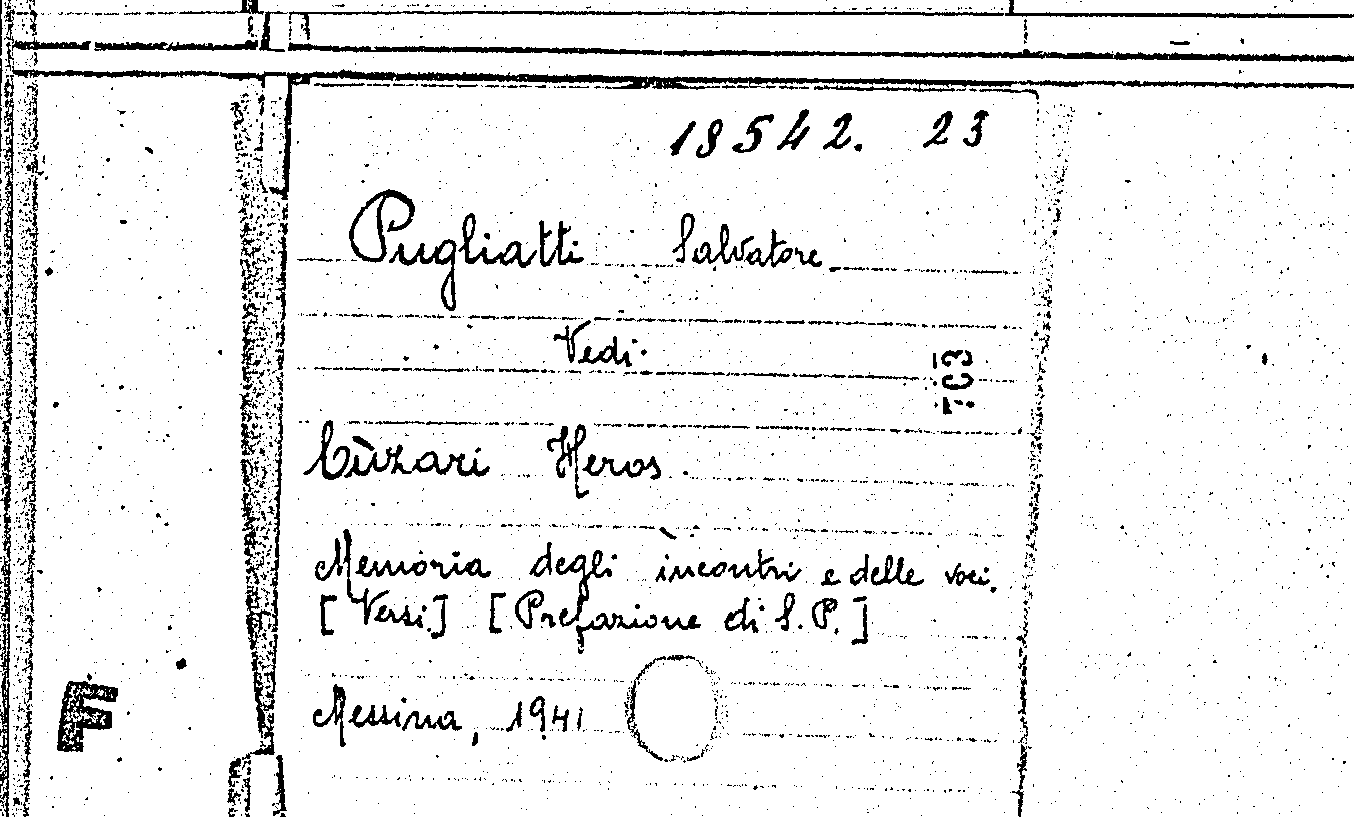 18542. 23
Pugliatti Salvatore
Vedi.
703
Cùzari Heros.
Memoria degli incontri e delle voci.
[Versi] [Prefazione di S. P.]
Messina, 1941
F